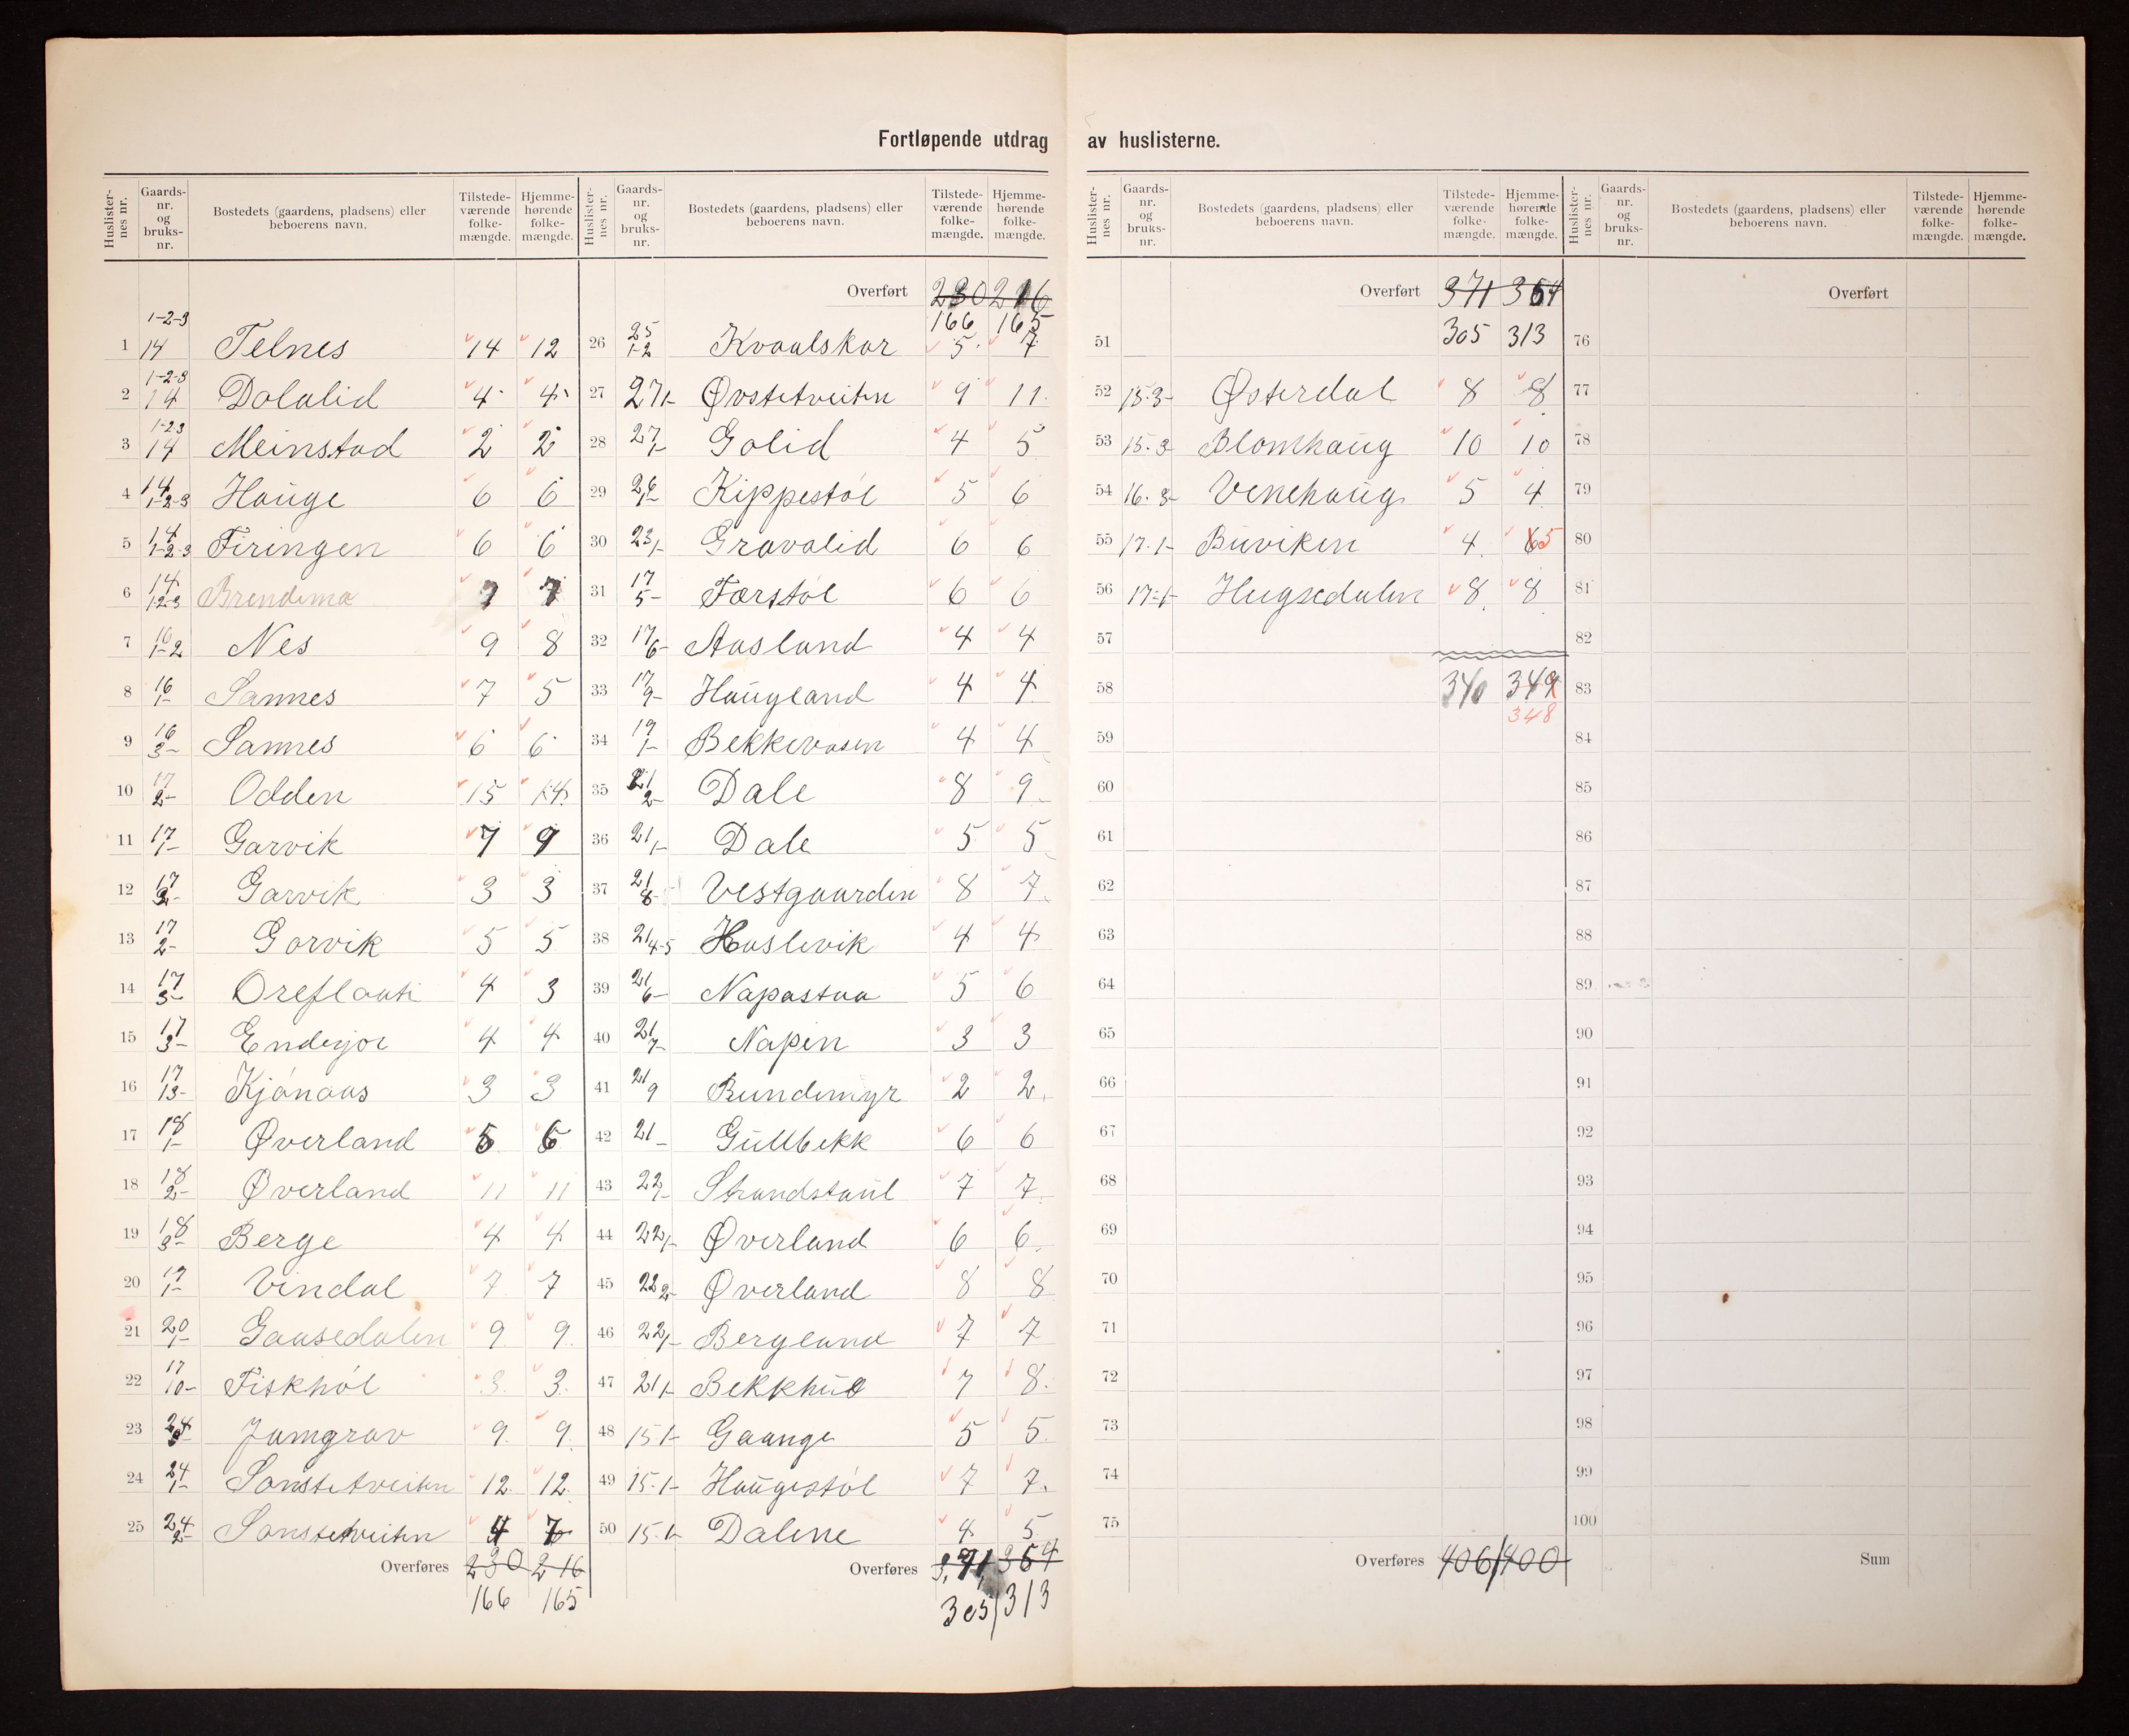 Fortløpende utdrag av huslisterne.
Huslisternes nr. Gaards-nr. og bruks-nr. Bostedets (gaardens, pladsens) eller beboerens navn. Tilstede-værende folke-mængde. Hjemme-hørende folke-mængde.
1 14 1-2-3 Telnes 14 12
2 14 1-2-3 Dalalid 4 4
3 14 1-2-3 Meinstad 2 2
4 14 1-2-3 Hauge 6 6
5 14 1-2-3 Firingen 6 6
6 14 1-2-3 Brendemo 7 7
7 16 1-2 Nes 9 8
8 16 1- Sannes 7 5
9 16 3- Sannes 6 6
10 17 2- Odden 15 14
11 17 1- Garvik 7 9
12 17 2- Garvik 3 3
13 17 2- Garvik 5 5
14 17 3- Oreflaati 4 3
15 17 3- Endesjor 4 4
16 17 13- Kjónaas 3 3
17 18 1- Øverland 5 6
18 18 2- Øverland 11 11
19 18 3- Berge 4 4
20 19 1- Vindal 7 7
21 20 1- Gaasedalen 9 9
22 17 10- Fiskhól 3 3
23 24 Jamgrav 9 9
24 24 1- Sanstetveiten 12 12
25 24 2- Sanstetveiten 4 7
Overføres 230 216
166 165
Huslisternes nr. Gaards-nr. og bruks-nr. Bostedets (gaardens, pladsens) eller beboerens navn. Tilstede-værende folke-mængde. Hjemme-hørende folke-mængde.
Overført 230 216
166 165
26 25 1-2 Kvaalskar 5 7
27 27 1- Øvstetveiten 9 11
28 27 1- Golid 4 5
29 26 1- Kippestól 5 6
30 23 1- Gravalid 6 6
31 17 5- Færstól 6 6
32 17 6- Aasland 4 4
33 17 9- Haugland 4 4
34 19 1- Bekkevasen 4 4
35 21 2- Dale 8 9
36 21 1- Dale 5 5
37 21 8- Vestgaarden 8 7
38 21 4-5 Haslevik 4 4
39 21 6- Napastaa 5 6
40 21 7- Napen 3 3
41 21 9 Bundemyr 2 2
42 21 - Gullbekk 6 6
43 22 1- Strandstaul 7 7
44 22 1- Øverland 6 6
45 22 2- Øverland 8 8
46 22 1- Bergland 7 7
47 21 1- Bekkhus 7 8
48 15 1- Gaange 5 5
49 15.1- Haugestól 7 7
50 15.1- Dalene 4 5
Overføres 371 354
305 313
Huslisternes nr. Gaards-nr. og bruks-nr. Bostedets (gaardens, pladsens) eller beboerens navn. Tilstede-værende folke-mængde. Hjemme-hørende folke-mængde.
Overført 371 354
51 305 313
52 15.3- Østerdal 8 8
53 15.3 Blomhaug 10 10
54 16.3- Venehaug 5 4
55 17.1- Buviken 4 6 5
56 17-1- Hegsedalen 8 8
57
58 340 349
348
59
60
61
62
63
64
65
66
67
68
69
70
71
72
73
74
75
Overføres 406 400
Huslisternes nr. Gaards-nr. og bruks-nr. Bostedets (gaardens, pladsens) eller beboerens navn. Tilstede-værende folke-mængde. Hjemme-hørende folke-mængde.
Overført
76
77
78
79
80
81
82
83
84
85
86
87
88
89
90
91
92
93
94
95
96
97
98
99
100
Sum